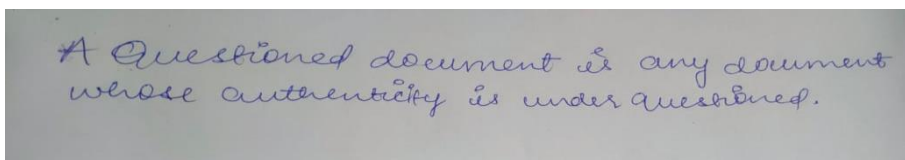 A Questioned document is any document
whose authenticity is under questioned.